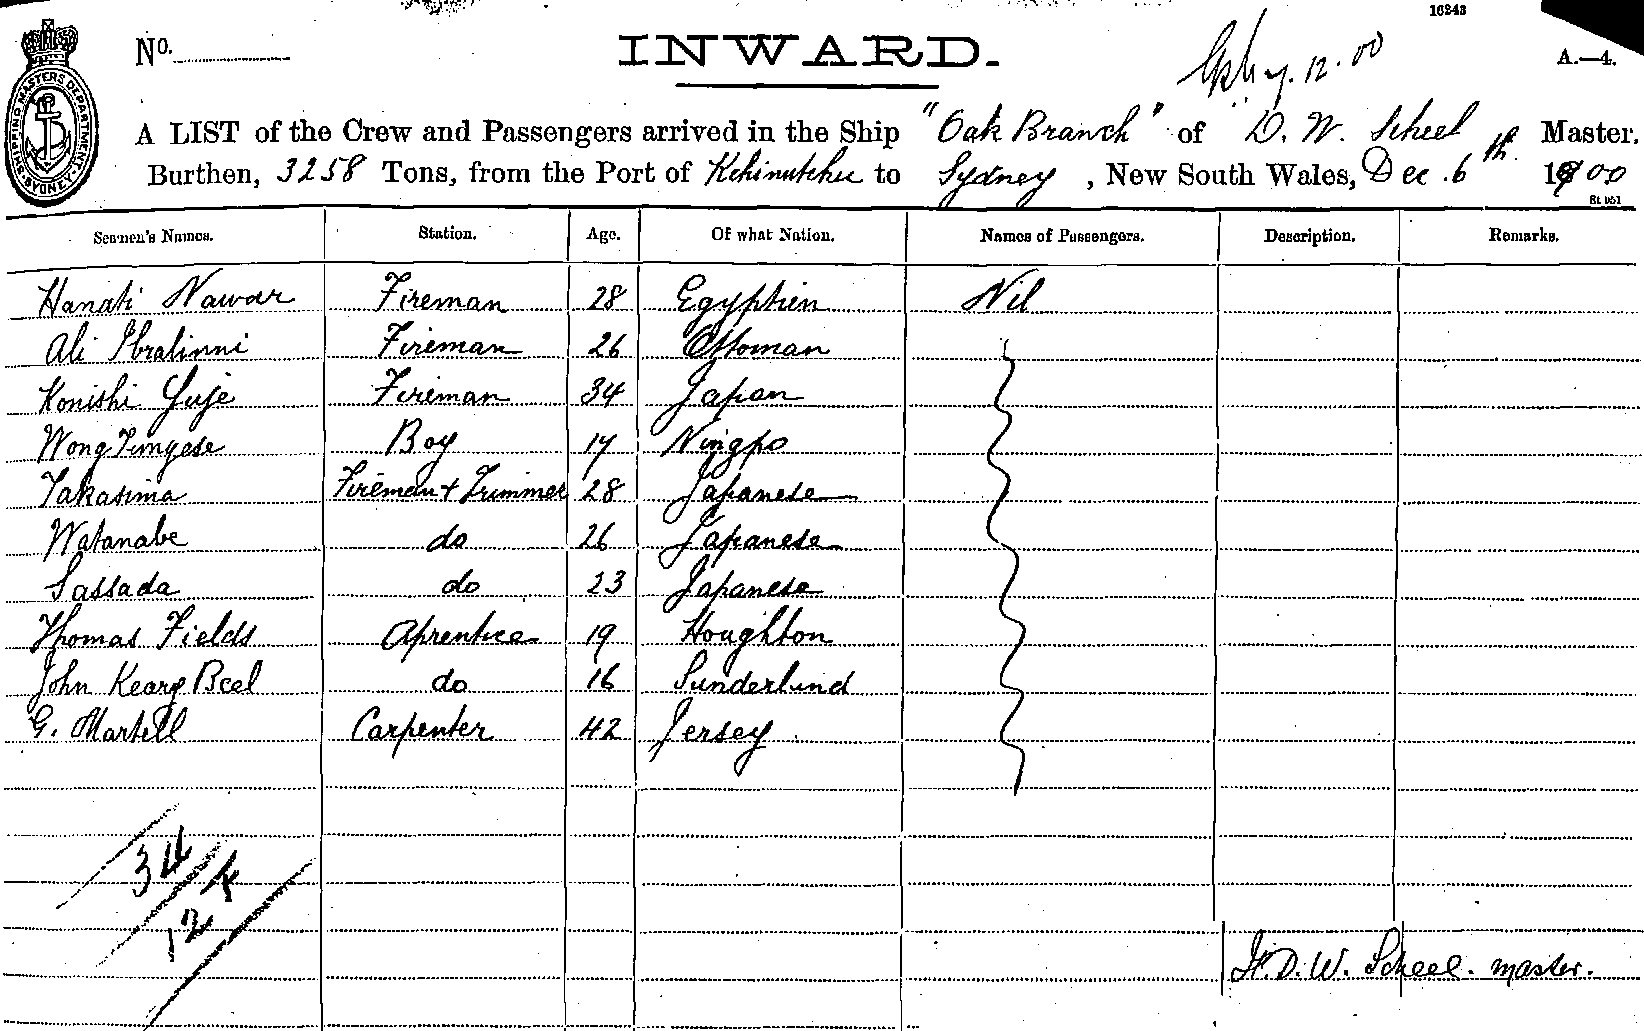 16243
No.
INWARD.
12.00
A.—4.
SHIPPING MASTERS DEPARTMENT SYDNEY, N.S.W.
A LIST of the Crew and Passengers arrived in the Ship "Oak Branch" of D. W. Scheel Master.
Burthen, 3258 Tons, from the Port of to Sydney, New South Wales, Dec. 6th 1900
Seamen's Names. Station. Age. Of what Nation. Names of Passengers. Description. Remarks.
Hanafi Nawar Fireman 28 Egyptien Nil
Ali Fireman 26 Ottoman
Konishi Yuje Fireman 34 Japan
Wong Boy 17 Ningpo
Takasima Fireman + Trimmer 28 Japanese
Watanabe do 26 Japanese
Sassada do 23 Japanese
Thomas Fields Aprentice 19 Houghton
John Beel do 16 Sunderland
G. Martell Carpenter 42 Jersey
34
124
D. W. Scheel. master.